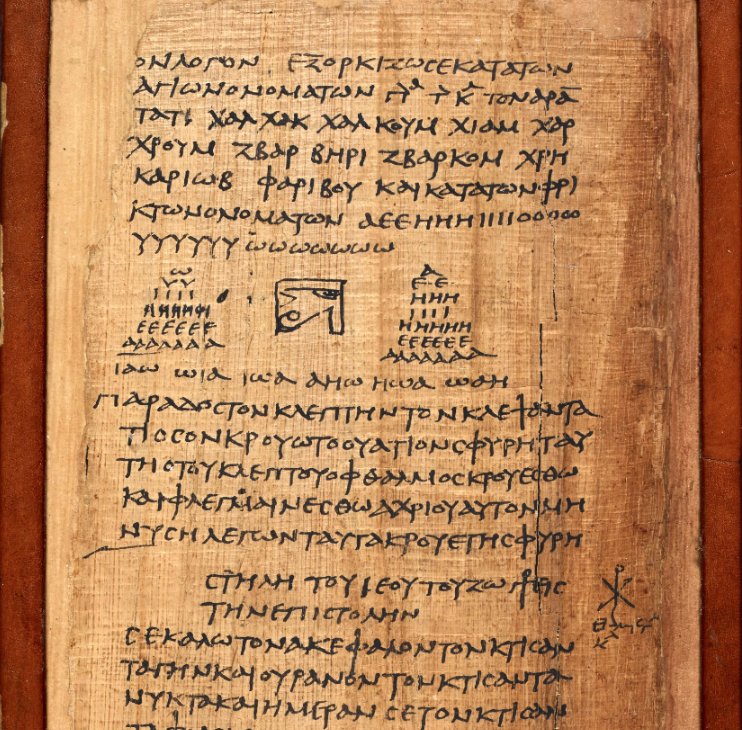 ΟΝΛΟΓΟΝ ΕΞΟΡΚΙΖΩϹΕΚΑΤΑΤΩΝ
ΑΓΙΩΝΟΝΟΜΑΤΩΝ ΤΟΝΑΡΑ
ΤΑΤΙ ΧΑΛΧΑΚ ΧΑΛΚΟΥΜ ΧΙΑΜ ΧΑΡ
ΧΡΟΥΜ ΖΒΑΡ ΒΗΡΙ ΖΒΑΡΚΟΜ ΧΡΗ
ΚΑΡΙΩΒ ΦΑΡΙΒΟΥ ΚΑΙΚΑΤΑΤΩΝΦΡΙ
ΚΤΩΝΟΝΟΜΑΤΩΝ ΑΕΕΗΗΗΙΙΙΙΟΟΟΟΟ
ΥΥΥΥΥΥ ΩΩΩΩΩΩΩ
Ω
ΥΥ
ΕΕΕΕΕΕ
ΑΑΑΑΑΑΑ
Α
ΕΕ
ΗΗΗ
ΙΙΙΙ
ΗΗΗΗΗ
ΕΕΕΕΕΕ
ΑΑΑΑΑΑΑ
ΙΑΩ ΩΙΑ ΙΩΑ ΑΗΩ ΗΩΑ ΩΑΗ
ΠΑΡΑΔΟϹΤΟΝΚΛΕΠΤΗΝΤΟΝΚΛΕΨΑΝΤΑ
ΤΙΟϹΟΝΚΡΟΥΩΤΟΟΥΑΤΙΟΝϹΦΥΡΗΤΑΥ
ΤΗΟΤΟΥΚΛΕΠΤΟΥΟΦΘΑΛΜΟϹΚΡΟΥΕϹΘΩ
ΚΑΙΦΛΕΓΜΑΙΝΕϹΘΩΑΧΡΙΟΥΑΥΤΟΝΜΗ
ΝΥϹΗΛΕΓΩΝΤΑΥΤΑΚΡΟΥΕΤΗϹΦΥΡΗ
ϹΤΗΛΗ ΤΟΥΙΕΟΥΤΟΥΖΩΓΡΕΙϹ
ΤΗΝΕΠΙϹΤΟΛΗΝ
ϹΕΚΑΛΩΤΟΝΑΚΕΦΑΛΟΝΤΟΝΚΤΙϹΑΝ
ΤΑΓΗΝΚΑΙΟΥΡΑΝΟΝΤΟΝΚΤΙϹΑΝΤΑ
ΝΥΚΤΑΚΑΙΗΜΕΡΑΝ ϹΕΤΟΝΚΤΙϹΑΝ